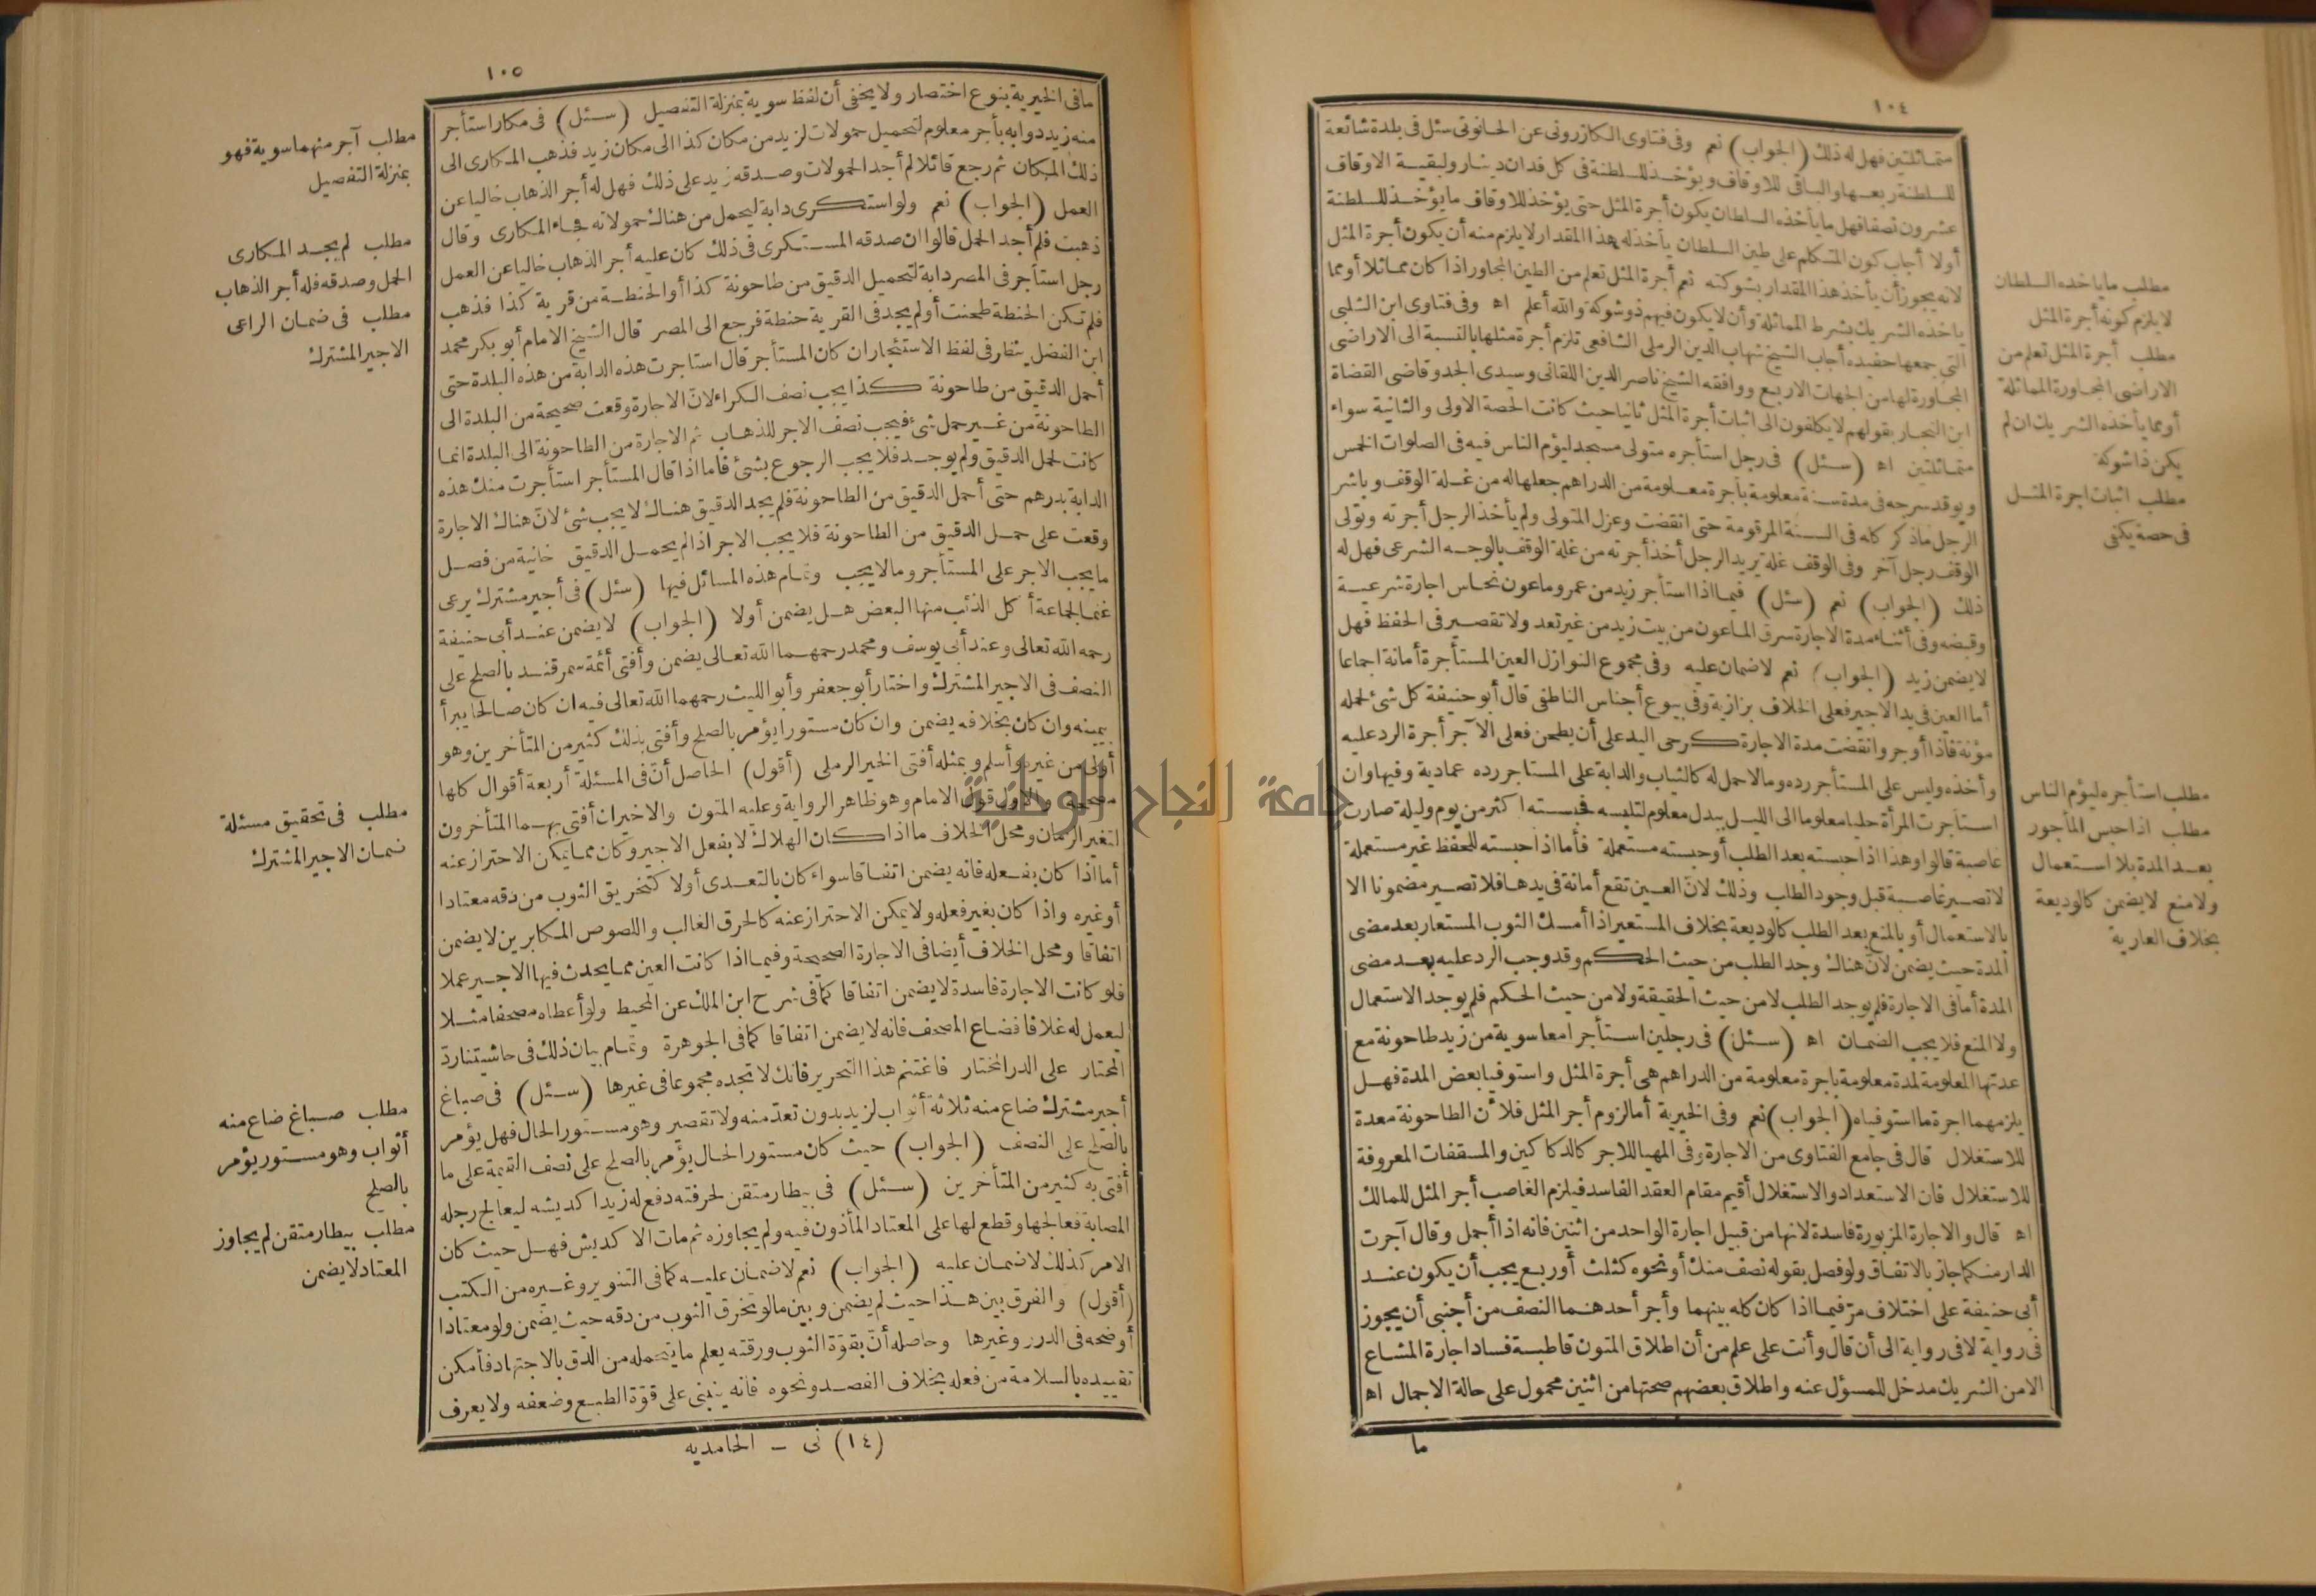 ١٠٤
متماثلتين فهل له ذلك (الجواب) نعم وفى فتاوى الكازرونى عن الحانوتى سئل فى بلدة شائعة
للسلطنة ربعها والباقى للاوقاف ويؤخذ للسلطنة فى كل فدان دينار ولبقية الاوقاف
عشرون نصفا فهل ما يأخذه السلطان يكون أجرة المثل حتى يؤخذ للاوقاف ما يؤخذ للسلطنة
أولا أجاب كون المتكلم على طين السلطان يأخذ له هذا المقدار لا يلزم منه أن يكون أجرة المثل
لانه يجوز أن يأخذ هذا المقدار بشوكته نعم أجرة المثل تعلم من الطين المجاور اذا كان مماثلا أو مما
ياخذه الشريك بشرط المماثلة وأن لا يكون فيهم ذو شوكة والله أعلم اه وفى فتاوى ابن الشلبى
التى جمعها حفيده أجاب الشيخ شهاب الدين الرملى الشافعى تلزم أجرة مثلها بالنسبة الى الاراضى
المجاورة لها من الجهات الاربع ووافقه الشيخ ناصر الدين اللقانى وسيدى الجد وقاضى القضاة
ابن النجار بقولهم لا يكلفون الى اثبات أجرة المثل ثانيا حيث كانت الحصة الاولى والثانية سواء
متماثلتين اه (سئل) فى رجل استأجره متولى مسجد ليؤم الناس فيه فى الصلوات الخمس
ويوقد سرجه فى مدة سنة معلومة بأجرة معلومة من الدراهم جعلها له من غلة الوقف وباشر
الرجل ماذكر كله فى السنة المرقومة حتى انقضت وعزل المتولى ولم يأخذ الرجل أجرته وتولى
الوقف رجل آخر وفى الوقف غلة يريد الرجل أخذ أجرته من غلة الوقف بالوجه الشرعى فهل له
ذلك (الجواب) نعم (سئل) فيما اذا استأجر زيد من عمرو ماعون نحاس اجارة شرعية
وقبضه وفى أثناء مدة الاجارة سرق الماعون من بيت زيد من غير تعد ولا تقصير فى الحفظ فهل
لا يضمن زيد (الجواب) نعم لا ضمان عليه وفى مجموع النوازل العين المستأجرة أمانة اجماعا
أما العين فى يد الاجير فعلى الخلاف بزازية وفى بيوع أجناس الناطفى قال أبو حنيفة كل شئ لحمله
مؤنة فاذا أوجر وانقضت مدة الاجارة كرحى اليد على أن يطحن فعلى الآجر أجرة الرد عليه
وأخذه وليس على المستأجر رده وما لا حمل له كالثياب والدابة على المستاجر رده عمادية وفيها وان
استاجرت المرأة حليا معلوما الى الليل ببدل معلوم لتلبسه فحبسته اكثر من يوم وليلة صارت
غاصبة قالوا وهذا اذا حبسته بعد الطلب أو حبسته مستعملة فأما اذا حبسته للحفظ غير مستعملة
لا تصير غاصبة قبل وجود الطلب وذلك لان العين تقع أمانة فى يدها فلا تصير مضمونا الا
بالاستعمال أو بالمنع بعد الطلب كالوديعة بخلاف المستعير اذا أمسك الثوب المستعار بعد مضى
المدة حيث يضمن لان هناك وجد الطلب من حيث الحكم وقد وجب الرد عليه بعد مضى
المدة أما فى الاجارة فلم يوجد الطلب لا من حيث الحقيقة ولا من حيث الحكم فلم يوجد الاستعمال
ولا المنع فلا يجب الضمان اه (سئل) فى رجلين استأجرا معا سوية من زيد طاحونة مع
عدتها المعلومة لمدة معلومة باجرة معلومة من الدراهم هى أجرة المثل واستوفيا بعض المدة فهل
يلزمهما اجرة ما استوفياه (الجواب) نعم وفى الخيرية أما لزوم أجر المثل فلأن الطاحونة معدة
للاستغلال قال فى جامع الفتاوى من الاجارة وفى المهيا للاجر كالدكاكين والمسقفات المعروفة
للاستغلال فان الاستعداد والاستغلال أقيم مقام العقد الفاسد فيلزم الغاصب أجر المثل للمالك
اه قال والاجارة المزبورة فاسدة لانها من قبيل اجارة الواحد من اثنين فانه اذا أجمل وقال آجرت
الدار منكما جاز بالاتفاق ولو فصل بقوله نصف منك أو نحوه كثلث أو ربع يجب أن يكون عند
أبى حنيفة على اختلاف مر فيما اذا كان كله بينهما وأجر أحدهما النصف من أجنبى أن يجوز
فى رواية لا فى رواية الى أن قال وأنت على علم من أن اطلاق المتون قاطبة فساد اجارة المشاع
الامن الشريك مدخل للمسؤل عنه واطلاق بعضهم صحتها من اثنين محمول على حالة الاجمال اه
ما
مطلب ما ياخذه السلطان
لا يلزم كونه أجرة المثل
مطلب أجرة المثل تعلم من
الاراضى المجاورة المماثلة
أو مما يأخذه الشريك ان لم
يكن ذا شوكة
مطلب اثبات اجرة المثل
فى حصة يكفى
مطلب استأجره ليؤم الناس
مطلب اذا حبس المأجور
بعد المدة بلا استعمال
ولا منع لا يضمن كالوديعة
بخلاف العارية
١٠٥
مافى الخيرية بنوع اختصار ولا يخفى أن لفظ سوية بمنزلة التفصيل (سئل) فى مكار استأجر
منه زيد دوابه بأجر معلوم لتحميل حمولات لزيد من مكان كذا الى مكان زيد فذهب المكارى الى
ذلك المكان ثم رجع قائلا لم أجد الحمولات وصدقه زيد على ذلك فهل له أجر الذهاب خاليا عن
العمل (الجواب) نعم ولو استكرى دابة ليحمل من هناك حمولاته فجاء المكارى وقال
ذهبت فلم أجد الحمل قالوا ان صدقه المستكرى فى ذلك كان عليه أجر الذهاب خاليا عن العمل
رجل استأجر فى المصر دابة لتحميل الدقيق من طاحونة كذا أو الحنطة من قرية كذا فذهب
فلم تكن الحنطة طحنت أو لم يجد فى القرية حنطة فرجع الى المصر قال الشيخ الامام أبو بكر محمد
ابن الفضل ينظر فى لفظ الاستئجار ان كان المستأجر قال استاجرت هذه الدابة من هذه البلدة حتى
أحمل الدقيق من طاحونة كذا يجب نصف الكراء لان الاجارة وقعت صحيحة من البلدة الى
الطاحونة من غير حمل شئ فيجب نصف الاجر للذهاب ثم الاجارة من الطاحونة الى البلدة انما
كانت لحمل الدقيق ولم يوجد فلا يجب الرجوع بشئ فاما اذا قال المستأجر استأجرت منك هذه
الدابة بدرهم حتى أحمل الدقيق من الطاحونة فلم يجد الدقيق هناك لا يجب شئ لان هناك الاجارة
وقعت على حمل الدقيق من الطاحونة فلا يجب الاجر اذا لم يحمل الدقيق خانية من فصل
ما يجب الاجر على المستأجر وما لا يجب وتمام هذه المسائل فيها (سئل) فى أجير مشترك يرعى
غنما لجماعة أكل الذئب منها البعض هل يضمن أولا (الجواب) لا يضمن عند أبى حنيفة
رحمه الله تعالى وعند أبى يوسف ومحمد رحمهما الله تعالى يضمن وأفتى أئمة سمرقند بالصلح على
النصف فى الاجير المشترك واختار أبو جعفر وأبو الليث رحمهما الله تعالى فيه ان كان صالحا يبرأ
بيمينه وان كان بخلافه يضمن وان كان مستورا يؤمر بالصلح وأفتى بذلك كثير من المتأخرين وهو
أولى من غيره وأسلم وبمثله أفتى الخير الرملى (أقول) الحاصل أن فى المسئلة أربعة أقوال كلها
مصححة والاول قول الامام وهو ظاهر الرواية وعليه المتون والاخيران أفتى بهما المتأخرون
لتغير الزمان ومحل الخلاف ما اذا كان الهلاك لا بفعل الاجير وكان مما يمكن الاحتراز عنه
أما اذا كان بفعله فانه يضمن اتفاقا سواء كان بالتعدى أولا كتخريق الثوب من دقه معتادا
أو غيره واذا كان بغير فعله ولا يمكن الاحتراز عنه كالحرق الغالب واللصوص المكابرين لا يضمن
اتفاقا ومحل الخلاف أيضا فى الاجارة الصحيحة وفيما اذا كانت العين مما يحدث فيها الاجير عملا
فلو كانت الاجارة فاسدة لا يضمن اتفاقا كما فى شرح ابن الملك عن المحيط ولو أعطاه مصحفا مثلا
ليعمل له غلافا فضاع المصحف فانه لا يضمن اتفاقا كما فى الجوهرة وتمام بيان ذلك فى حاشيتنا رد
المحتار على الدر المختار فاغتنم هذا التحرير فانك لا تجده مجموعا فى غيرها (سئل) فى صباغ
أجير مشترك ضاع منه ثلاثة أثواب لزيد بدون تعد منه ولا تقصير وهو مستور الحال فهل يؤمر
بالصلح على النصف (الجواب) حيث كان مستور الحال يؤمر بالصلح على نصف القيمة على ما
أفتى به كثير من المتأخرين (سئل) فى بيطار متقن لحرفته دفع له زيد اكديشه ليعالج رجله
المصابة فعالجها وقطع لها على المعتاد المأذون فيه ولم يجاوزه ثم مات الاكديش فهل حيث كان
الامر كذلك لا ضمان عليه (الجواب) نعم لا ضمان عليه كما فى التنوير وغيره من الكتب
(أقول) والفرق بين هذا حيث لم يضمن وبين مالو تخرق الثوب من دقه حيث يضمن ولو معتادا
أوضحه فى الدرر وغيرها وحاصله أن بقوة الثوب ورقته يعلم ما يتحمله من الدق بالاجتهاد فأمكن
تقييده بالسلامة من فعله بخلاف الفصد ونحوه فانه ينبنى على قوة الطبع وضعفه ولا يعرف
(١٤) نى - الحامديه
مطلب آجر منهما سوية فهو
بمنزلة التفصيل
مطلب لم يجد المكارى
الحمل وصدقه فله أجر الذهاب
مطلب فى ضمان الراعى
الاجير المشترك
مطلب فى تحقيق مسئلة
ضمان الاجير المشترك
مطلب صباغ ضاع منه
أثواب وهو مستور يؤمر
بالصلح
مطلب بيطار متقن لم يجاوز
المعتاد لا يضمن
جامعة النجاح الوطنية